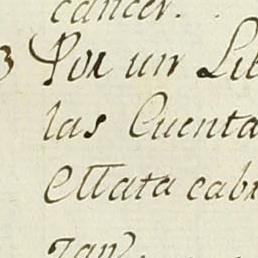 cancer.
3 Por un Lib
las Cuenta
Ettata cabr